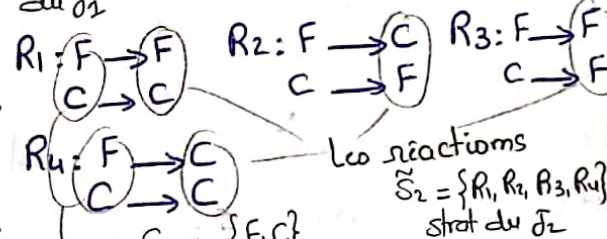 du J1
R1: F → F R2: F → C R3: F → F
C → C C → F C → F
R4: F → C Les réactions
C → C S̃2 = {R1, R2, R3, R4}
strat du J2
{F, C}